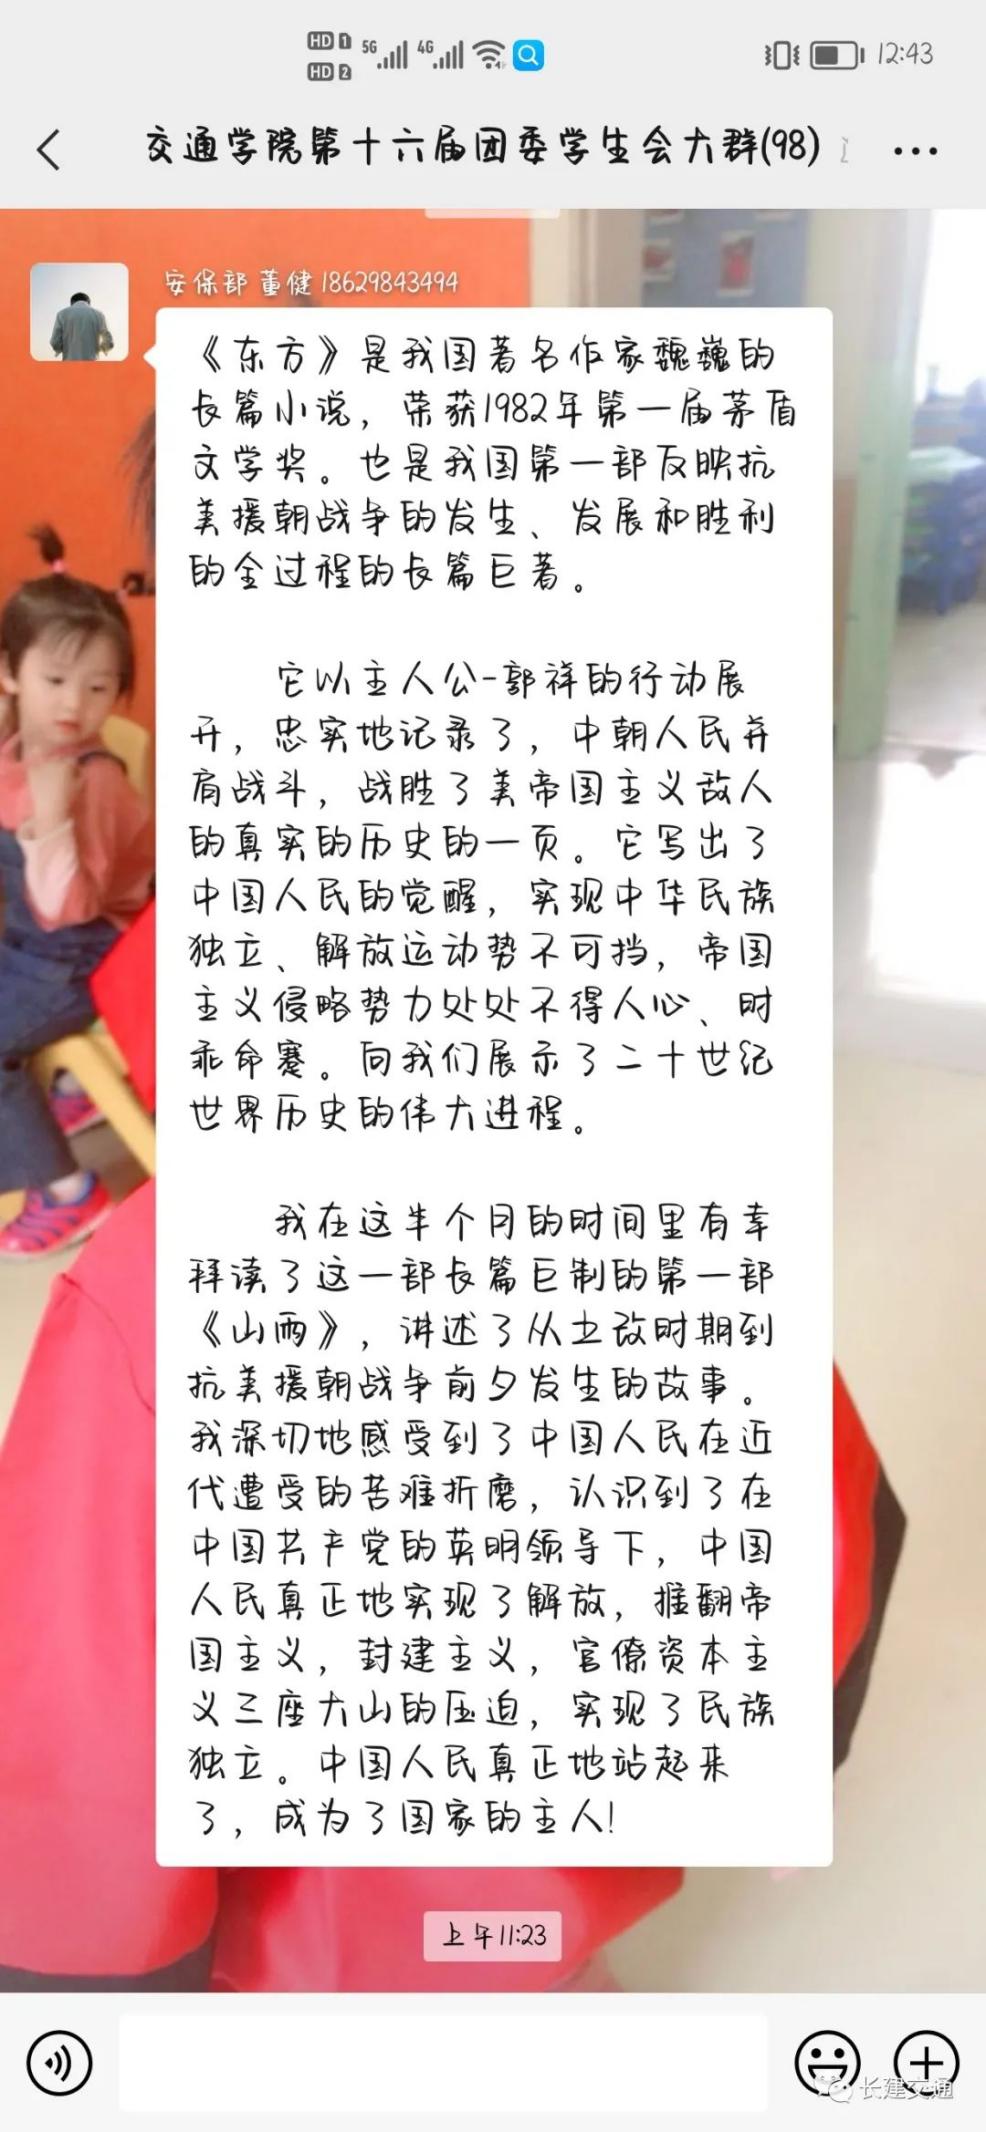 HD 1 5G 4G 12:43
HD 2
交通学院第十六届团委学生会大群(98)
安保部 董健 18629843494
《东方》是我国著名作家魏巍的
长篇小说，荣获1982年第一届茅盾
文学奖。也是我国第一部反映抗
美援朝战争的发生、发展和胜利
的全过程的长篇巨著。
它以主人公-郭祥的行动展
开，忠实地记录了，中朝人民并
肩战斗，战胜了美帝国主义敌人
的真实的历史的一页。它写出了
中国人民的觉醒，实现中华民族
独立、解放运动势不可挡，帝国
主义侵略势力处处不得人心、时
乖命蹇。向我们展示了二十世纪
世界历史的伟大进程。
我在这半个月的时间里有幸
拜读了这一部长篇巨制的第一部
《山雨》，讲述了从土改时期到
抗美援朝战争前夕发生的故事。
我深切地感受到了中国人民在近
代遭受的苦难折磨，认识到了在
中国共产党的英明领导下，中国
人民真正地实现了解放，推翻帝
国主义，封建主义，官僚资本主
义三座大山的压迫，实现了民族
独立。中国人民真正地站起来
了，成为了国家的主人!
上午11:23
长建交通